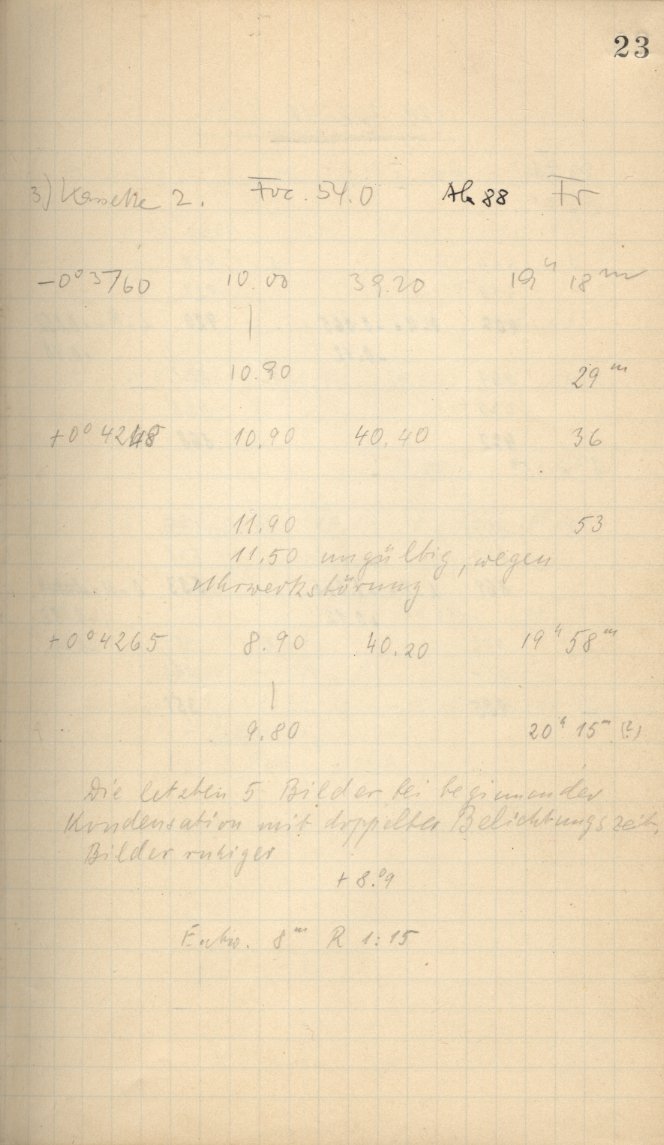 23
3) Kassette 2. Foc. 54.0 Ab 88 Fr
-0°3760 10.00 39.20 19h 18m
10.90 29m
+0°4248 10.90 40.40 36
11.90 53
11.50 ungültig, wegen
Uhrwerkstörung
+0°4265 8.90 40.20 19h 58m
9.80 20h 15m (?)
Die letzten 5 Bilder bei beginnender
Kondensation mit doppelter Belichtungszeit,
Bilder ruhiger
+ 8.°9
Entw. 8m R 1:15